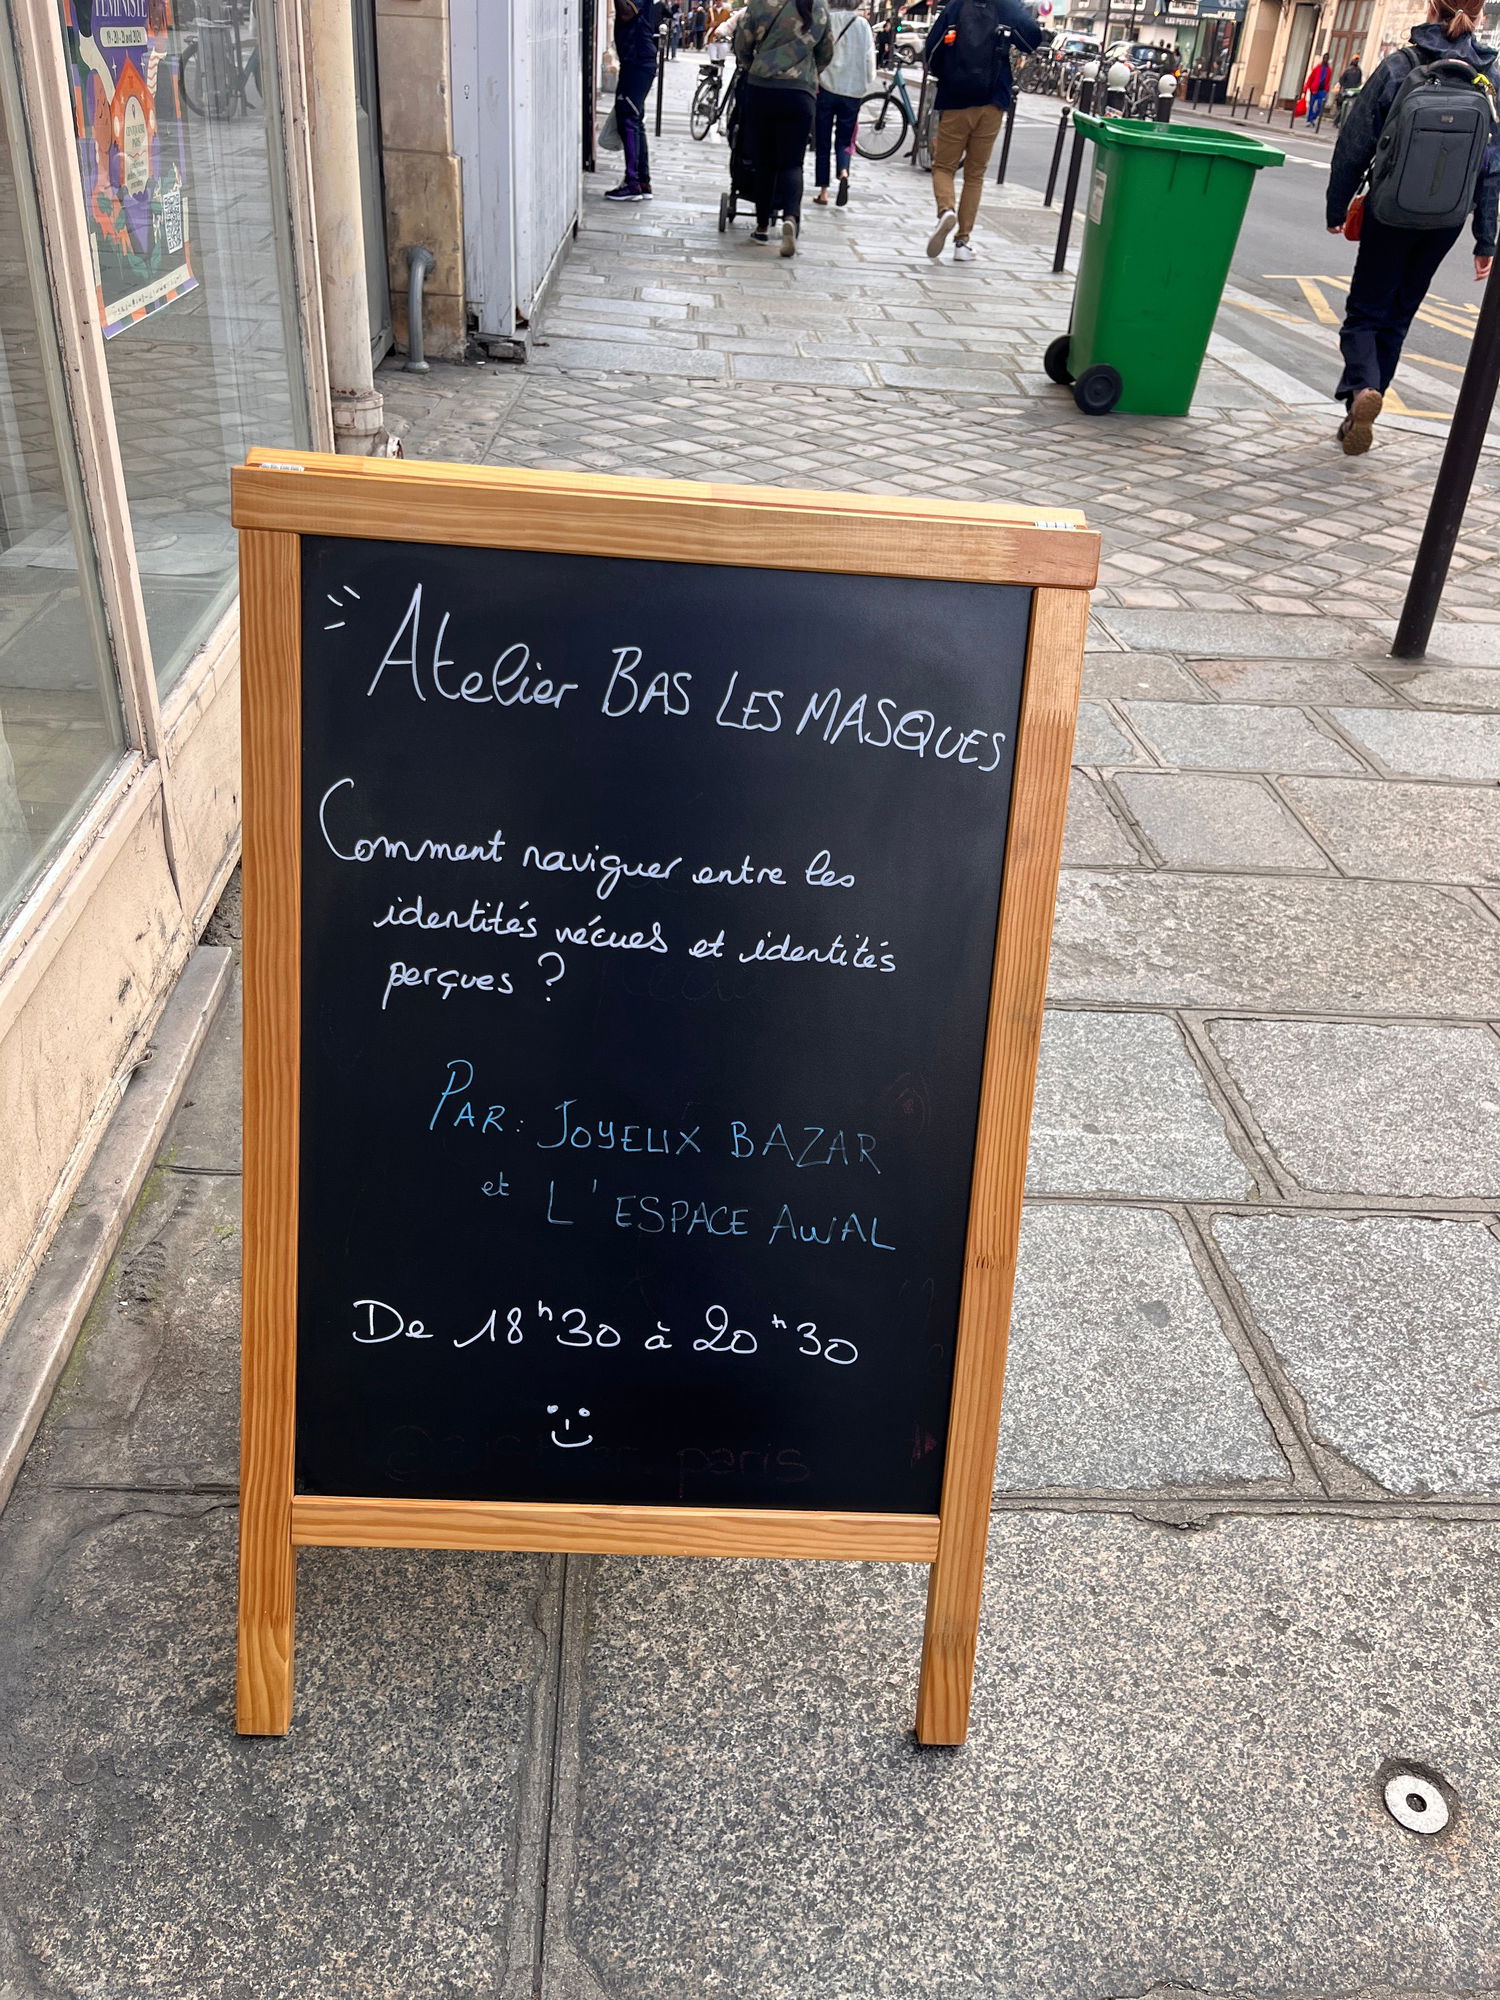 FÉMINISTE
Atelier BAS LES MASQUES
Comment naviguer entre les
identités vécues et identités
perçues ?
PAR: JOYEUX BAZAR
et L'ESPACE AWAL
De 18h30 à 20h30
paris